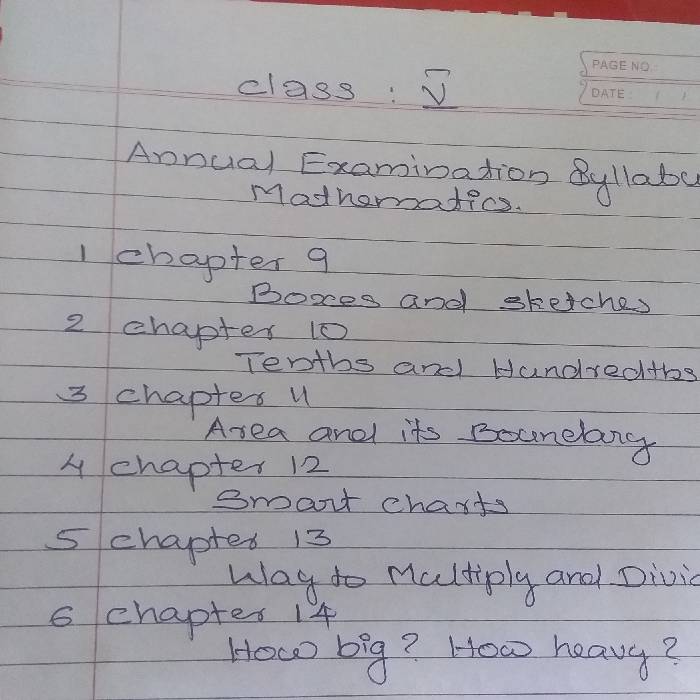 PAGE NO.
DATE: / /
Class : V
Annual Examination Syllabu
Mathematics.
1 Chapter 9
Boxes and sketches
2 Chapter 10
Tenths and Hundredths
3 Chapter 11
Area and its Boundary
4 Chapter 12
Smart charts
5 Chapter 13
Way to Multiply and Divid
6 Chapter 14
How big? How heavy?